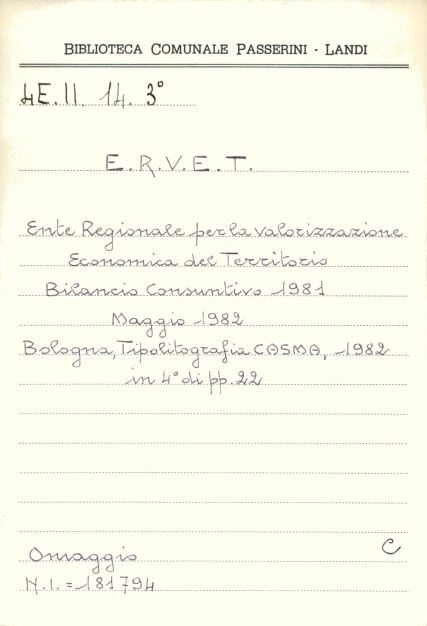 BIBLIOTECA COMUNALE PASSERINI - LANDI
4E.II. 14. 3°
E.R.V.E.T.
Ente Regionale per la valorizzazione
Economica del Territorio
Bilancio Consuntivo 1981
Maggio 1982
Bologna, Tipolitografia CASMA, 1982
in 4° di pp. 22
C
Omaggio
N.I. = 181794